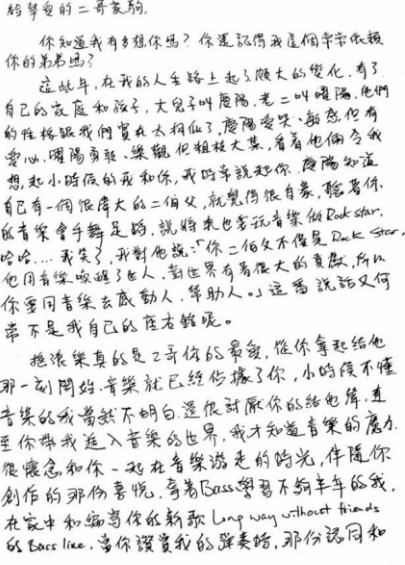 給摯愛的二哥家駒.
你知道我有多想你嗎? 你還記得我這個常常依賴
你的弟弟嗎?
這些年,在我的人生路上起了頗大的變化,有了
自己的家庭和孩子,大兒子叫慶陽,老二叫曜陽,他們
的性格跟我們實在太相似了,慶陽愛哭、敏感,但有
愛心,曜陽勇敢、樂觀,但粗枝大葉,看着他倆令我
想起小時候的我和你,我時常說起你,慶陽知道
自己有一個很偉大的二伯父,就覺得很自豪,聽著你
的音樂會手舞足蹈,說將來也要玩音樂做Rock star,
哈哈.... 我笑了,我對他說:「你二伯父不僅是Rock Star,
他用音樂喚醒了世人,對世界有着很大的貢獻,所以
你要用音樂去感動人、幫助人。」這番說話又何
嘗不是我自己的座右銘呢。
搖滾樂真的是二哥你的最愛,從你拿起結他
那一刻開始,音樂就已經佔據了你,小時候不懂
音樂的我當然不明白,還很討厭你的結他聲,直
至你帶我進入音樂的世界,我才知道音樂的魔力.
很懷念和你一起在音樂游走的時光,伴隨你
創作的那份喜悅,拿著Bass學習不夠半年的我,
在家中和編寫你的新歌Long way without friends
的Bass line,當你讚賞我的彈奏時,那份認同和